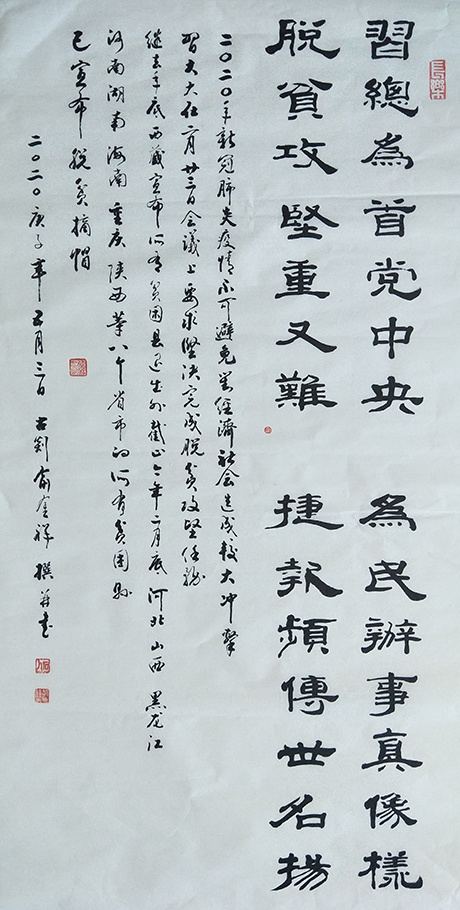 習總為首党中央 為民辦事真像樣
脱貧攻堅重又難 捷報頻傳世名揚
二〇二〇年新冠肺炎疫情不可避免对经濟社会造成较大冲擊
習大大在二月廿三日会議上要求坚决完成脱贫攻坚任務
继去年底西藏宣布所有贫困县退出外截止今年二月底河北山西黑龙江
河南湖南海南重庆陕西等八个省市的所有贫困县
已宣布脱贫摘帽
二〇二〇庚子年五月三日古剡俞金祥撰并书